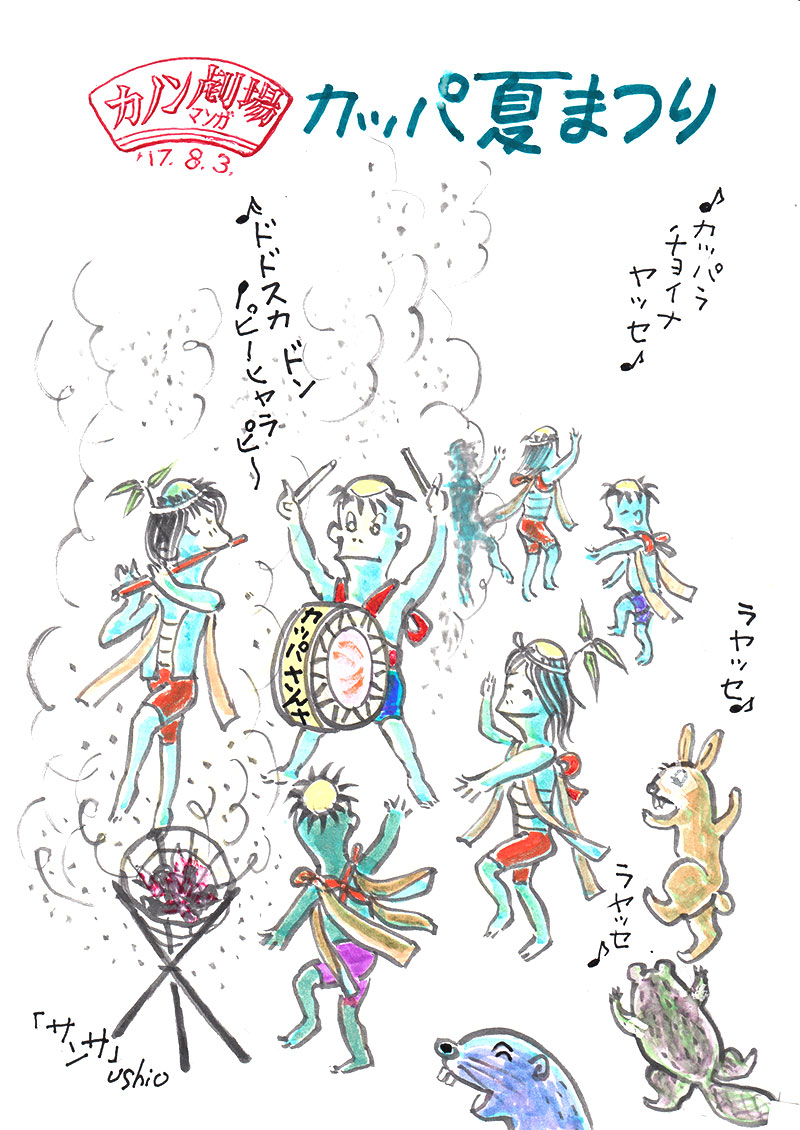 カノン劇場
マンガ
'17. 8. 3.
カッパ夏まつり
♪カッパラ
チョイメ
ヤッセ♪
♪ドドスカ ドン
♪ピーヒャラ
ピ〜
カッパさんさ
ラヤッセ♪
ラヤッセ♪
「サンサ」
ushio